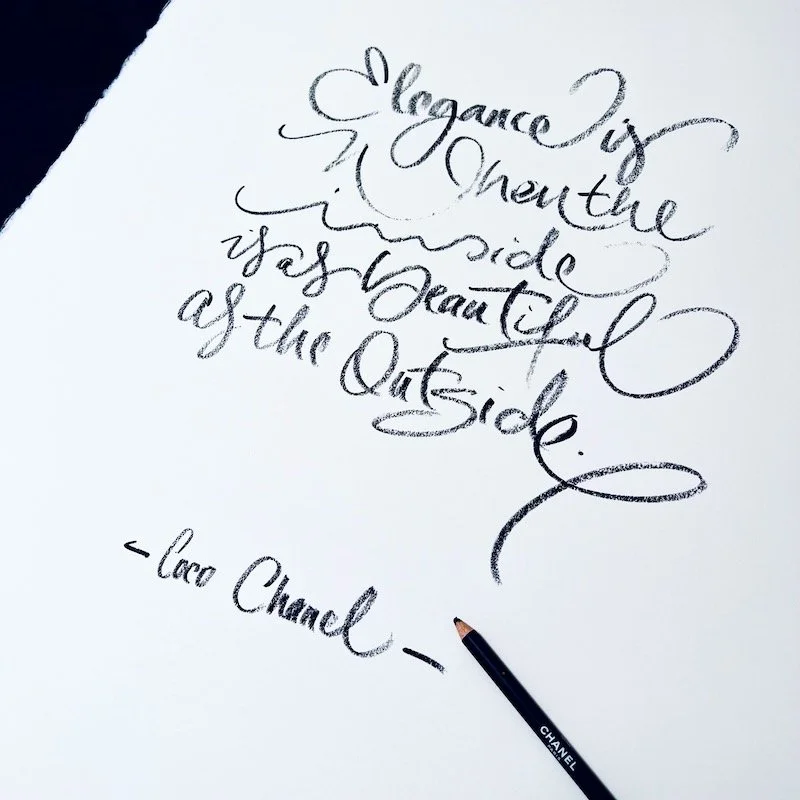 Elegance is
When the
inside
is as Beautiful
as the Outside.
- Coco Chanel -
CHANEL